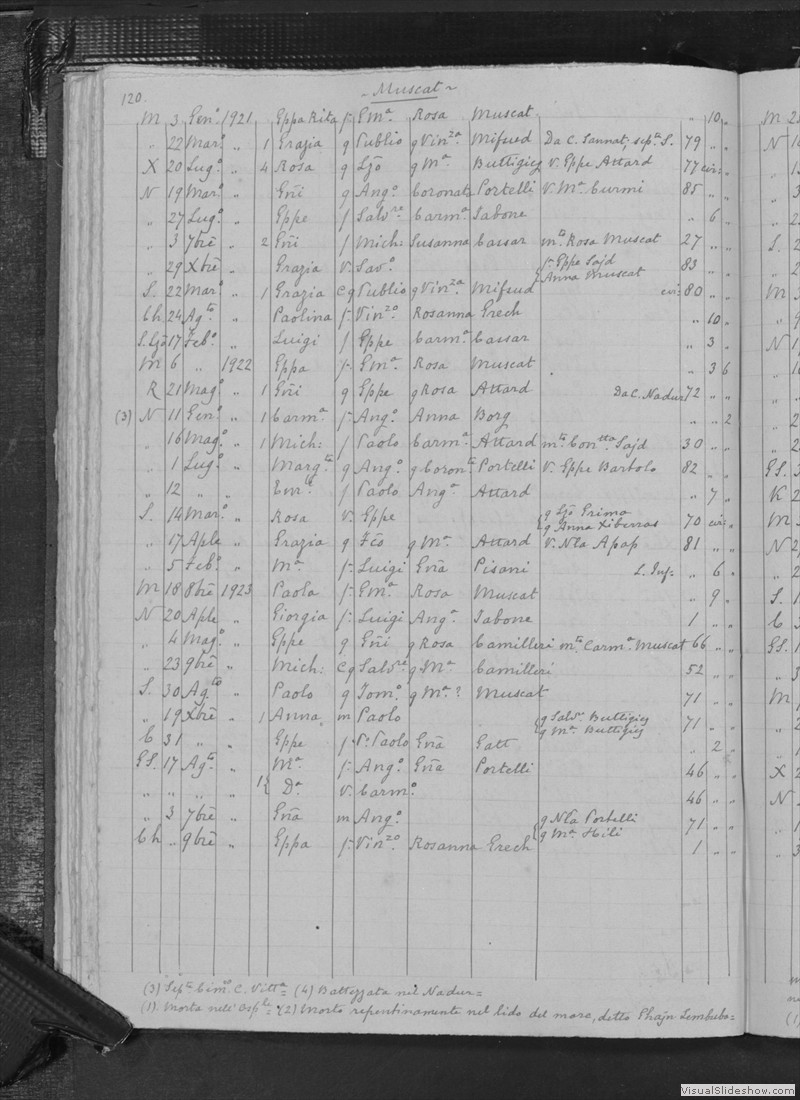 120.
- Muscat -
M 3 Gen.o 1921 Eppa Rita f. Em.a Rosa Muscat „ 10 „
„ 22 Mar.o „ 1 Grazia q Publio q Vin.za Mifsud Da C. Sannat, sep.ta S. 79 „ „
X 20 Lug.o „ 4 Rosa q Ljō q M.a Buttigieg V. Eppe Attard 77 cir: „
N 19 Mar.o „ Gñi q Ang.o Coronata Portelli V. M.a Curmi 85 „ „
„ 27 Lug.o „ Eppe f Salv.re Carm.a Tabone „ 6 „
„ 3 7brē „ 2 Gñi f Mich: Susanna Cassar m.to Rosa Muscat 27 „ „
„ 29 Xbrē „ Grazia V. Sav.o { f. Eppe Sajd 83 „ „
{ Anna Muscat
S. 22 Mar.o „ 1 Grazia C q Publio q Vin.za Mifsud cir: 80 „ „
Ch 24 Ag.to „ Paolina f. Vin.zo Rosanna Grech „ 10 „
S. Ljō 17 Feb.o „ Luigi f Eppe Carm.a Cassar „ 3 „
M 6 „ 1922 Eppa f. Em.a Rosa Muscat „ 3 6
R 21 Mag.o „ 1 Gñi q Eppe q Rosa Attard Da C. Nadur 72 „ „
(3) N 11 Gen.o „ 1 Carm.a f. Ang.o Anna Borg „ „ 2
„ 16 Mag.o „ 1 Mich: f Paolo Carm.a Attard m.to Con.tta Sajd 30 „ „
„ 1 Lug.o „ Marg.ta q Ang.o q Coron.ta Portelli V. Eppe Bartolo 82 „ „
„ 12 „ „ f Paolo Ang.a Attard „ 7 „
S. 14 Mar.o „ Rosa V. Eppe { q Ljō Grima 70 cir: „
{ q Anna Xiberras
„ 17 Aple „ Grazia q Fcō q M.a Attard V. Nla Apap 81 „ „
„ 5 Feb.o „ M.a f. Luigi Gñā Pisani L. Inf= „ 6 „
M 18 8brē 1923 Paola f. Em.a Rosa Muscat „ 9 „
N 20 Aple „ Giorgia f. Luigi Ang.a Tabone 1 „ „
„ 4 Mag.o „ Eppe q Gñi q Rosa Camilleri m.to Carm.a Muscat 66 „ „
„ 23 9brē „ Mich: C q Salv.re q M.a Camilleri 52 „ „
S. 30 Ag.to „ Paolo q Tom.o q M.a ? Muscat 71 „ „
„ 19 Xbrē „ 1 Anna m Paolo { q Salv. Buttigieg 71 „ „
{ q M.a Buttigieg
C 31 „ „ Eppe f. Paolo Gñā Gatt „ 2 „
GS. 17 Ag.to „ M.a f. Ang.o Gñā Portelli 46 „ „
„ „ „ „ 1{ D.a V. Carm.o 46 „ „
„ 3 7brē „ Gñā m Ang.o { q Nla Portelli 71 „ „
{ q M.a Hili
Ch „ 9brē „ Eppa f. Vin.zo Rosanna Grech 1 „ „
(3) Sep.ta Cim.o C. Vitt.a = (4) Battezzata nel Nadur =
(1). Morta nell' Osp.le = (2) Morto repentinamente nel lido del mare, detto Lembuba =
VisualSlideshow.com